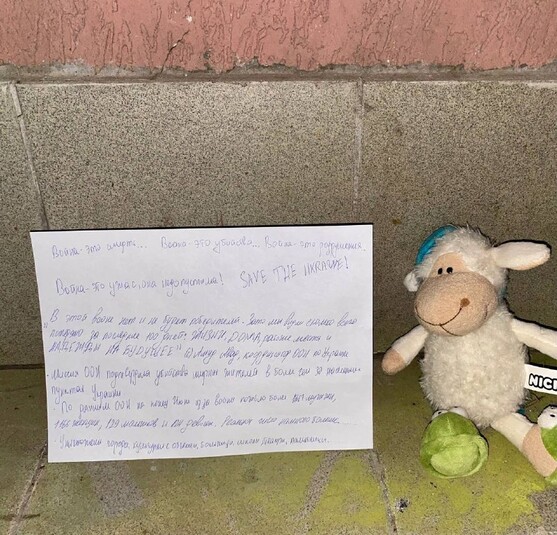 Война-это смерть... Война-это убийства... Война-это разрушения.
Война-это ужас, она недопустима! SAVE THE UKRAINE!
В этой войне нет и не будет победителя. Зато мы видим сколько всего
потеряно за последние 100 дней: ЖИЗНИ, ДОМА, рабочие места и
НАДЕЖДЫ НА БУДУЩЕЕ" © Амин Авад, координатор ООН по Украине
Миссия ООН подтвердила убийства мирных жителей в более чем 30 населённых
пунктах Украины
По данным ООН на конец Июня из-за войны погибло более мужчин,
женщин, мальчиков и девочек. Реальное число намного больше...
Уничтожены города, больницы, школы
NICI